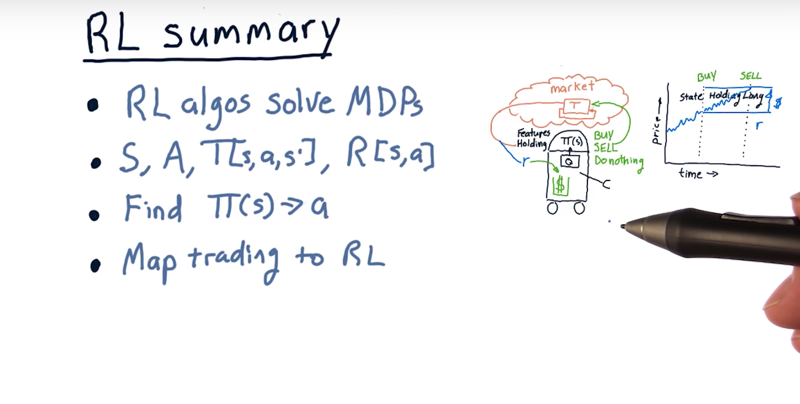 RL summary
• RL algos solve MDPs
• S, A, T[s,a,s'], R[s,a]
• Find π(s) → a
• Map trading to RL
market
T
Features
Holding
π(s)
Q
BUY
SELL
Do nothing
r
$
BUY SELL
State Holding Long
$
r
price →
time →